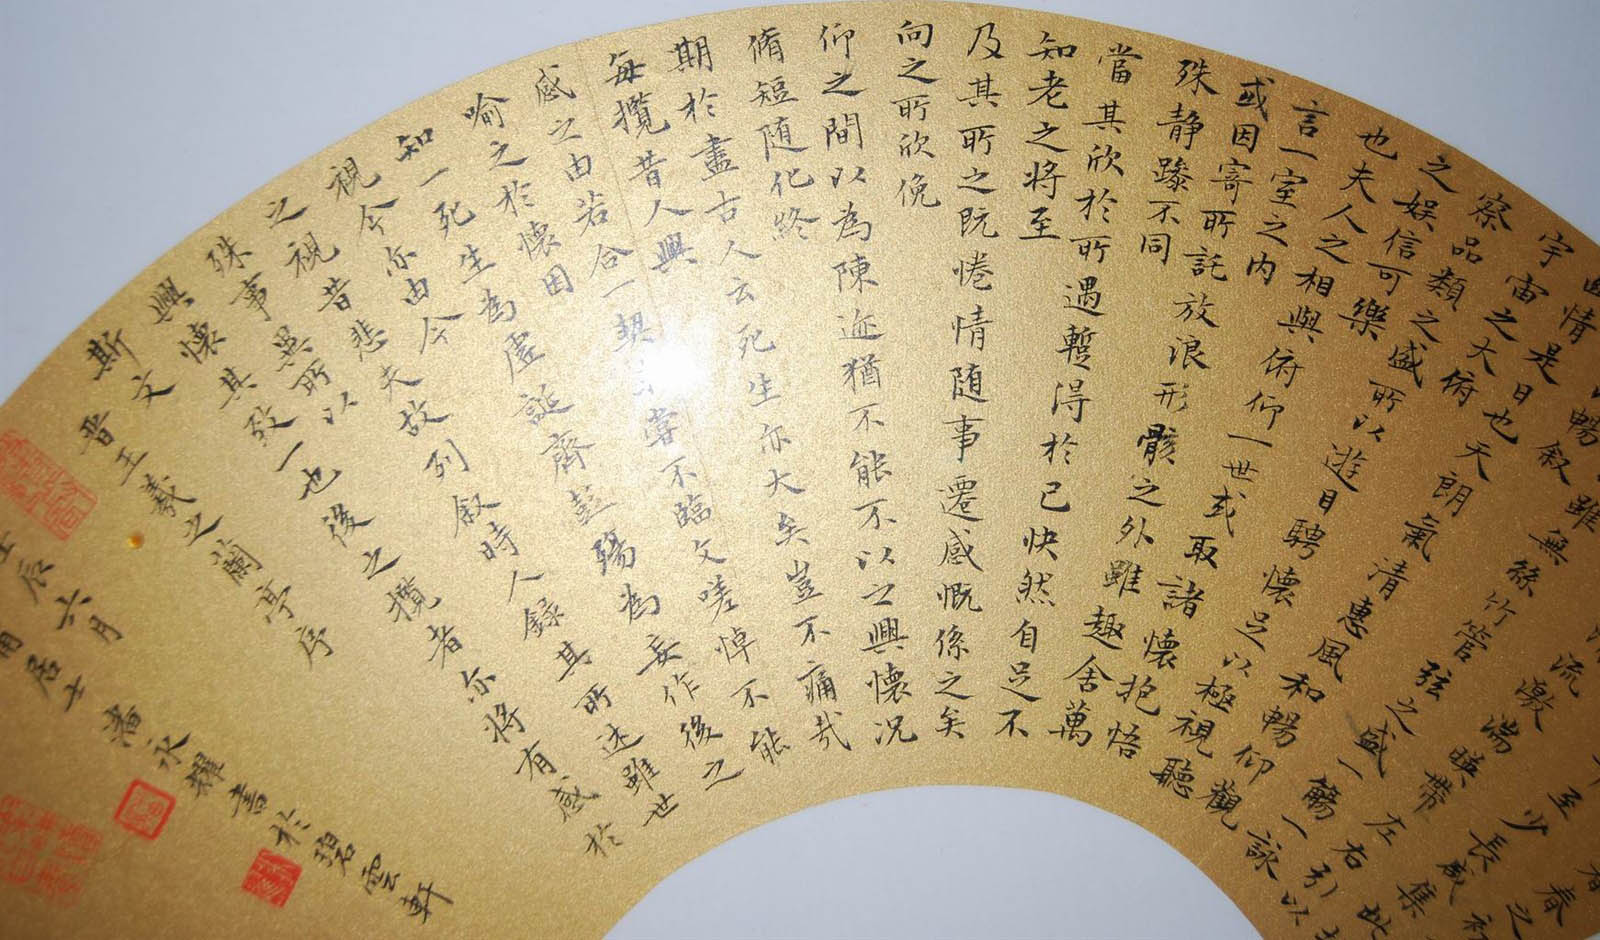 春之初
至少長咸集此
流激湍暎帶左右引以
雖無絲竹管弦之盛一觴一詠以
暢敘
幽情是日也天朗氣清惠風和暢仰觀
宇宙之大俯
察品類之盛所以遊目騁懷足以極視聽
之娱信可樂
也夫人之相與俯仰一世或取諸懷抱悟
言一室之内
或因寄所託放浪形骸之外雖趣舍萬
殊静躁不同
當其欣於所遇蹔得於己快然自足不
知老之将至
及其所之既惓情随事遷感慨係之矣
向之所欣俛
仰之間以為陳迹猶不能不以之興懷况
脩短随化終
期於盡古人云死生亦大矣豈不痛哉
每攬昔人興
感之由若合一契未嘗不臨文嗟悼不能
喻之於懷固
知一死生為虛誕齊彭殤為妄作後之
視今亦由今
之視昔悲夫故列敘時人錄其所述雖世
殊事異所以
興懷其致一也後之攬者亦将有感於
斯文
晋王羲之蘭亭序
壬辰六月
居士潘永耀書於碧雲軒